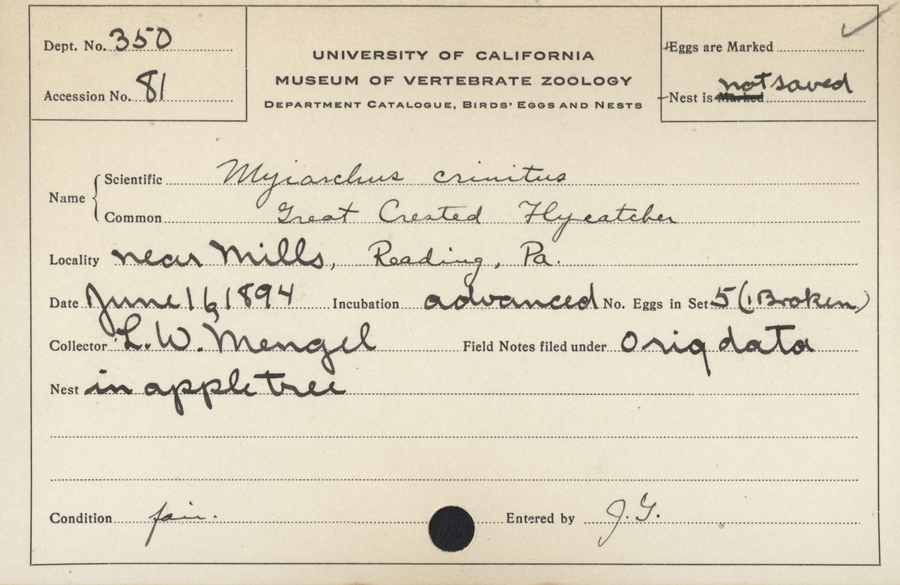 Dept. No. 350
Accession No. 81
UNIVERSITY OF CALIFORNIA
MUSEUM OF VERTEBRATE ZOOLOGY
DEPARTMENT CATALOGUE, BIRDS' EGGS AND NESTS
Eggs are Marked
Nest is Marked not saved
Name
Scientific Myiarchus crinitus
Common Great Crested Flycatcher
Locality near Mills, Reading, Pa.
Date June 16, 1894 Incubation advanced No. Eggs in Set 5 (1 Broken)
Collector L. W. Mengel Field Notes filed under orig data
Nest in apple tree
Condition fair. Entered by J. G.